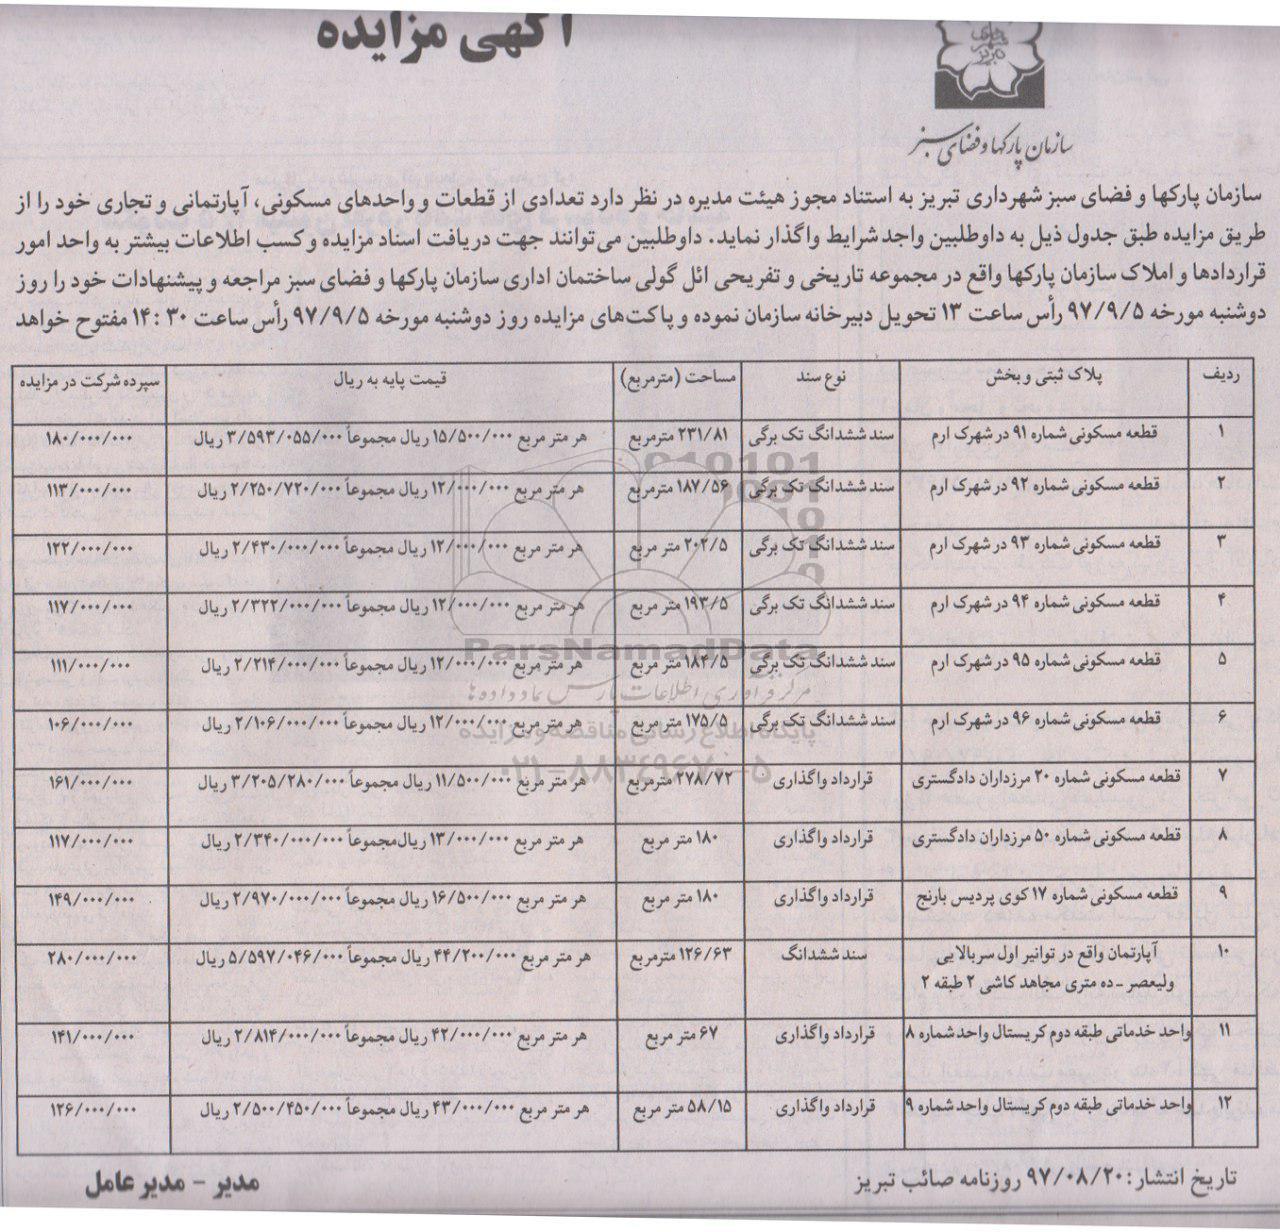 آگهی مزایده
سازمان پارکها و فضای سبز
سازمان پارکها و فضای سبز شهرداری تبریز به استناد مجوز هیئت مدیره در نظر دارد تعدادی از قطعات و واحدهای مسکونی، آپارتمانی و تجاری خود را از
طریق مزایده طبق جدول ذیل به داوطلبین واجد شرایط واگذار نماید. داوطلبین می‌توانند جهت دریافت اسناد مزایده و کسب اطلاعات بیشتر به واحد امور
قراردادها و املاک سازمان پارکها واقع در مجموعه تاریخی و تفریحی ائل گولی ساختمان اداری سازمان پارکها و فضای سبز مراجعه و پیشنهادات خود را روز
دوشنبه مورخه ۹۷/۹/۵ رأس ساعت ۱۳ تحویل دبیرخانه سازمان نموده و پاکت‌های مزایده روز دوشنبه مورخه ۹۷/۹/۵ رأس ساعت ۳۰ : ۱۴ مفتوح خواهد
ردیف پلاک ثبتی و بخش نوع سند مساحت (مترمربع) قیمت پایه به ریال سپرده شرکت در مزایده
۱ قطعه مسکونی شماره ۹۱ در شهرک ارم سند ششدانگ تک برگی ۲۳۱/۸۱ مترمربع هر متر مربع ۱۵/۵۰۰/۰۰۰ ریال مجموعاً ۳/۵۹۳/۰۵۵/۰۰۰ ریال ۱۸۰/۰۰۰/۰۰۰
۲ قطعه مسکونی شماره ۹۲ در شهرک ارم سند ششدانگ تک برگی ۱۸۷/۵۶ مترمربع هر متر مربع ۱۲/۰۰۰/۰۰۰ ریال مجموعاً ۲/۲۵۰/۷۲۰/۰۰۰ ریال ۱۱۳/۰۰۰/۰۰۰
۳ قطعه مسکونی شماره ۹۳ در شهرک ارم سند ششدانگ تک برگی ۲۰۲/۵ متر مربع هر متر مربع ۱۲/۰۰۰/۰۰۰ ریال مجموعاً ۲/۴۳۰/۰۰۰/۰۰۰ ریال ۱۲۲/۰۰۰/۰۰۰
۴ قطعه مسکونی شماره ۹۴ در شهرک ارم سند ششدانگ تک برگی ۱۹۳/۵ متر مربع هر متر مربع ۱۲/۰۰۰/۰۰۰ ریال مجموعاً ۲/۳۲۲/۰۰۰/۰۰۰ ریال ۱۱۷/۰۰۰/۰۰۰
ParsNamadData
۵ قطعه مسکونی شماره ۹۵ در شهرک ارم سند ششدانگ تک برگی ۱۸۴/۵ متر مربع هر متر مربع ۱۲/۰۰۰/۰۰۰ ریال مجموعاً ۲/۲۱۴/۰۰۰/۰۰۰ ریال ۱۱۱/۰۰۰/۰۰۰
مرکز فرآوری اطلاعات پارس نماد داده ها
۶ قطعه مسکونی شماره ۹۶ در شهرک ارم سند ششدانگ تک برگی ۱۷۵/۵ متر مربع هر متر مربع ۱۲/۰۰۰/۰۰۰ ریال مجموعاً ۲/۱۰۶/۰۰۰/۰۰۰ ریال ۱۰۶/۰۰۰/۰۰۰
پایگاه اطلاع رسانی مناقصه و مزایده
۰۲۱-۸۸۳۴۹۶۷۰-۵
۷ قطعه مسکونی شماره ۲۰ مرزداران دادگستری قرارداد واگذاری ۲۷۸/۷۲ مترمربع هر متر مربع ۱۱/۵۰۰/۰۰۰ ریال مجموعاً ۳/۲۰۵/۲۸۰/۰۰۰ ریال ۱۶۱/۰۰۰/۰۰۰
۸ قطعه مسکونی شماره ۵۰ مرزداران دادگستری قرارداد واگذاری ۱۸۰ متر مربع هر متر مربع ۱۳/۰۰۰/۰۰۰ ریال مجموعاً ۲/۳۴۰/۰۰۰/۰۰۰ ریال ۱۱۷/۰۰۰/۰۰۰
۹ قطعه مسکونی شماره ۱۷ کوی پردیس بارنج قرارداد واگذاری ۱۸۰ متر مربع هر متر مربع ۱۶/۵۰۰/۰۰۰ ریال مجموعاً ۲/۹۷۰/۰۰۰/۰۰۰ ریال ۱۴۹/۰۰۰/۰۰۰
۱۰ آپارتمان واقع در توانیر اول سربالایی سند ششدانگ ۱۲۶/۶۳ مترمربع هر متر مربع ۴۴/۲۰۰/۰۰۰ ریال مجموعاً ۵/۵۹۷/۰۴۶/۰۰۰ ریال ۲۸۰/۰۰۰/۰۰۰
ولیعصر - ده متری مجاهد کاشی ۲ طبقه ۲
۱۱ واحد خدماتی طبقه دوم کریستال واحد شماره ۸ قرارداد واگذاری ۶۷ متر مربع هر متر مربع ۴۲/۰۰۰/۰۰۰ ریال مجموعاً ۲/۸۱۴/۰۰۰/۰۰۰ ریال ۱۴۱/۰۰۰/۰۰۰
۱۲ واحد خدماتی طبقه دوم کریستال واحد شماره ۹ قرارداد واگذاری ۵۸/۱۵ متر مربع هر متر مربع ۴۳/۰۰۰/۰۰۰ ریال مجموعاً ۲/۵۰۰/۴۵۰/۰۰۰ ریال ۱۲۶/۰۰۰/۰۰۰
تاریخ انتشار: ۹۷/۰۸/۲۰ روزنامه صائب تبریز
مدیر - مدیر عامل